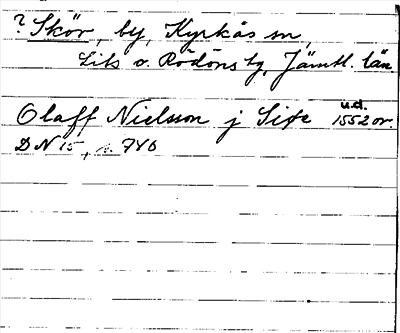 ? Skör, by, Kyrkås sn,
Lits o. Rödöns tg, Jämtl. län
Olaff Nielsson j Sixe u.d. 1552 or.
DN 15, s. 740